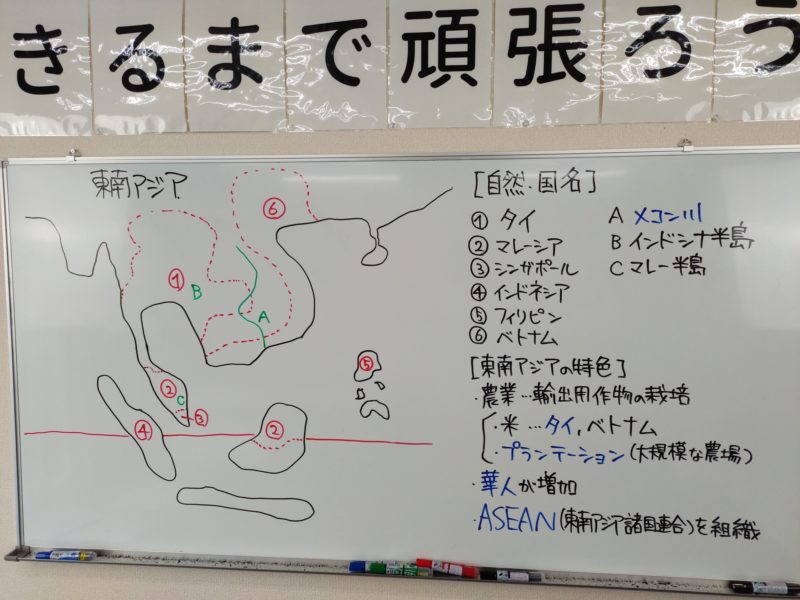 きるまで頑張ろう
東南アジア
⑥
①
B
A
②
C
③
④
②
⑤
[自然・国名]
① タイ
② マレーシア
③ シンガポール
④ インドネシア
⑤ フィリピン
⑥ ベトナム
A メコン川
B インドシナ半島
C マレー半島
[東南アジアの特色]
・農業…輸出用作物の栽培
・米…タイ, ベトナム
・プランテーション(大規模な農場)
・華人が増加
・ASEAN(東南アジア諸国連合)を組織